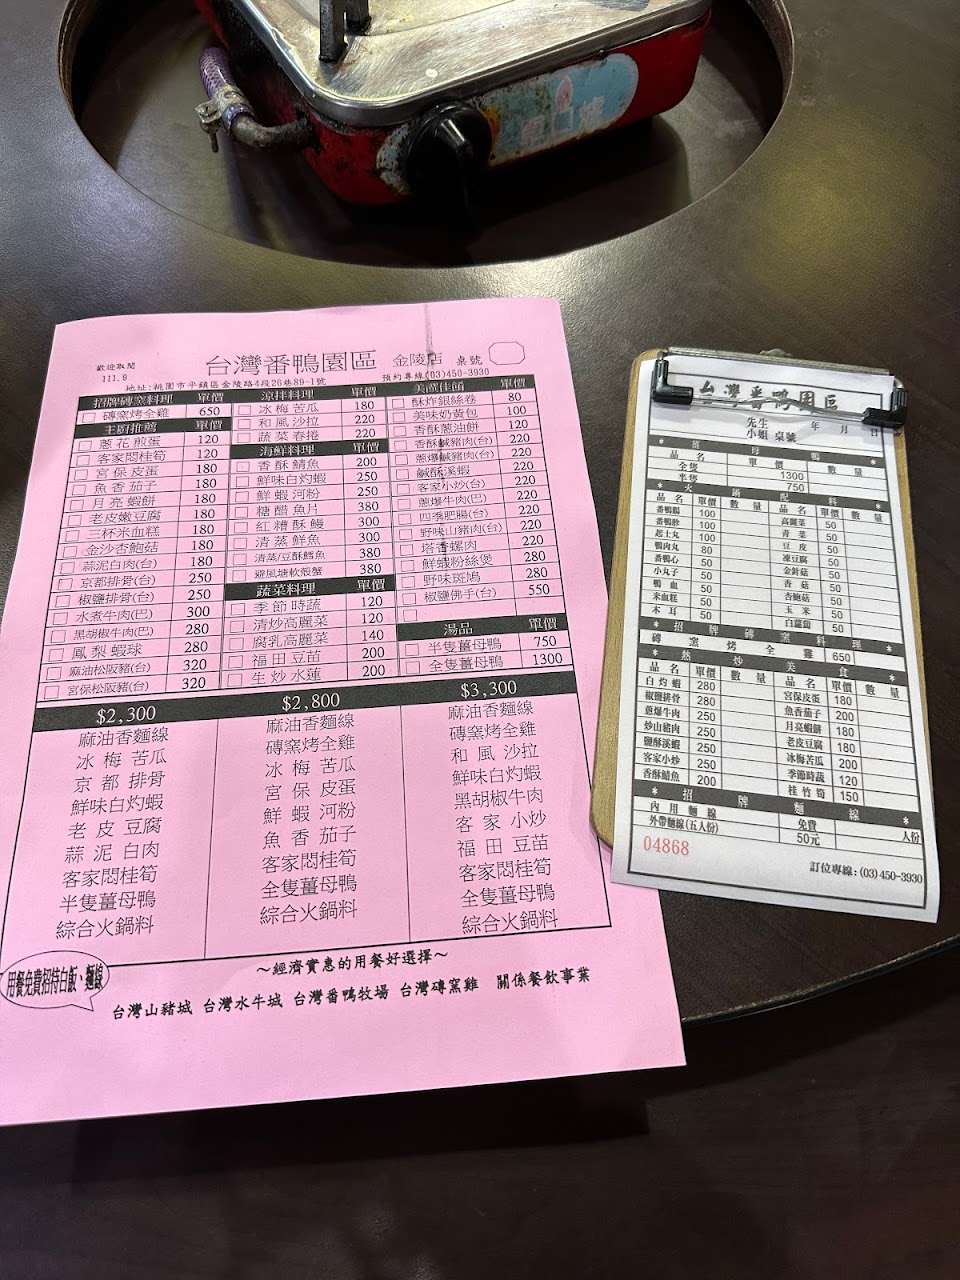 歡迎取閱
111.9
台灣番鴨園區 金陵店 桌號
地址:桃園市平鎮區金陵路4段26巷89-1號 預約專線(03)450-3930
招牌磚窯料理 單價
磚窯烤全雞 650
主廚推薦 單價
蔥花煎蛋 120
客家悶桂筍 120
宮保皮蛋 180
魚香茄子 180
月亮蝦餅 180
老皮嫩豆腐 180
三杯米血糕 180
金沙杏鮑菇 180
蒜泥白肉(台) 180
京都排骨(台) 250
椒鹽排骨(台) 250
水煮牛肉(巴) 300
黑胡椒牛肉(巴) 280
鳳梨蝦球 280
麻油松阪豬(台) 320
宮保松阪豬(台) 320
涼拌料理 單價
冰梅苦瓜 180
和風沙拉 220
蔬菜春捲 220
海鮮料理 單價
香酥鯖魚 200
鮮味白灼蝦 250
鮮蝦河粉 250
糖醋魚片 380
紅糟酥鰻 300
清蒸鮮魚 300
清蒸/豆酥鱈魚 380
避風塘軟殼蟹 380
蔬菜料理 單價
季節時蔬 120
清炒高麗菜 120
腐乳高麗菜 140
福田豆苗 200
牛炒水蓮 200
美饌佳餚 單價
酥炸銀絲卷 80
美味奶黃包 100
香酥蔥油餅 120
香酥鹹豬肉(台) 220
蔥爆鹹豬肉(台) 220
鹹酥溪蝦 220
客家小炒(台) 220
蔥爆牛肉(巴) 220
四季肥腸(台) 220
野味山豬肉(台) 220
塔香螺肉 220
鮮蝦粉絲煲 280
野味斑鳩 280
椒鹽佛手(台) 550
湯品 單價
半隻薑母鴨 750
全隻薑母鴨 1300
$2,300
麻油香麵線
冰梅苦瓜
京都排骨
鮮味白灼蝦
老皮豆腐
蒜泥白肉
客家悶桂筍
半隻薑母鴨
綜合火鍋料
$2,800
麻油香麵線
磚窯烤全雞
冰梅苦瓜
宮保皮蛋
鮮蝦河粉
魚香茄子
客家悶桂筍
全隻薑母鴨
綜合火鍋料
$3,300
麻油香麵線
磚窯烤全雞
和風沙拉
鮮味白灼蝦
黑胡椒牛肉
客家小炒
福田豆苗
客家悶桂筍
全隻薑母鴨
綜合火鍋料
用餐免費招待白飯、麵線
～經濟實惠的用餐好選擇～
台灣山豬城 台灣水牛城 台灣番鴨牧場 台灣磚窯雞 關係餐飲事業
台灣番鴨園區
先生 年 月 日
小姐 桌號
* 薑母鴨 *
品名 單價 數量
全隻 1300
半隻 750
* 火鍋配料 *
品名 單價 數量 品名 單價 數量
番鴨腸 100 高麗菜 50
番鴨胗 100 青菜 50
起士丸 100 豆皮 50
鴨肉丸 80 凍豆腐 50
番鴨心 50 金針菇 50
小丸子 50 香菇 50
鴨血 50 杏鮑菇 50
米血糕 50 玉米 50
木耳 50 白蘿蔔 50
* 招牌磚窯料理 *
磚窯烤全雞 650
* 熱炒美食 *
品名 單價 數量 品名 單價 數量
白灼蝦 280 宮保皮蛋 180
椒鹽排骨 280 魚香茄子 200
蔥爆牛肉 250 月亮蝦餅 180
炒山豬肉 250 老皮豆腐 180
鹽酥溪蝦 250 冰梅苦瓜 200
客家小炒 250 季節時蔬 120
香酥鯖魚 200 桂竹筍 150
* 招牌麵線 *
內用麵線 免費 人份
外帶麵線(五人份) 50元
04868
訂位專線:(03)450-3930